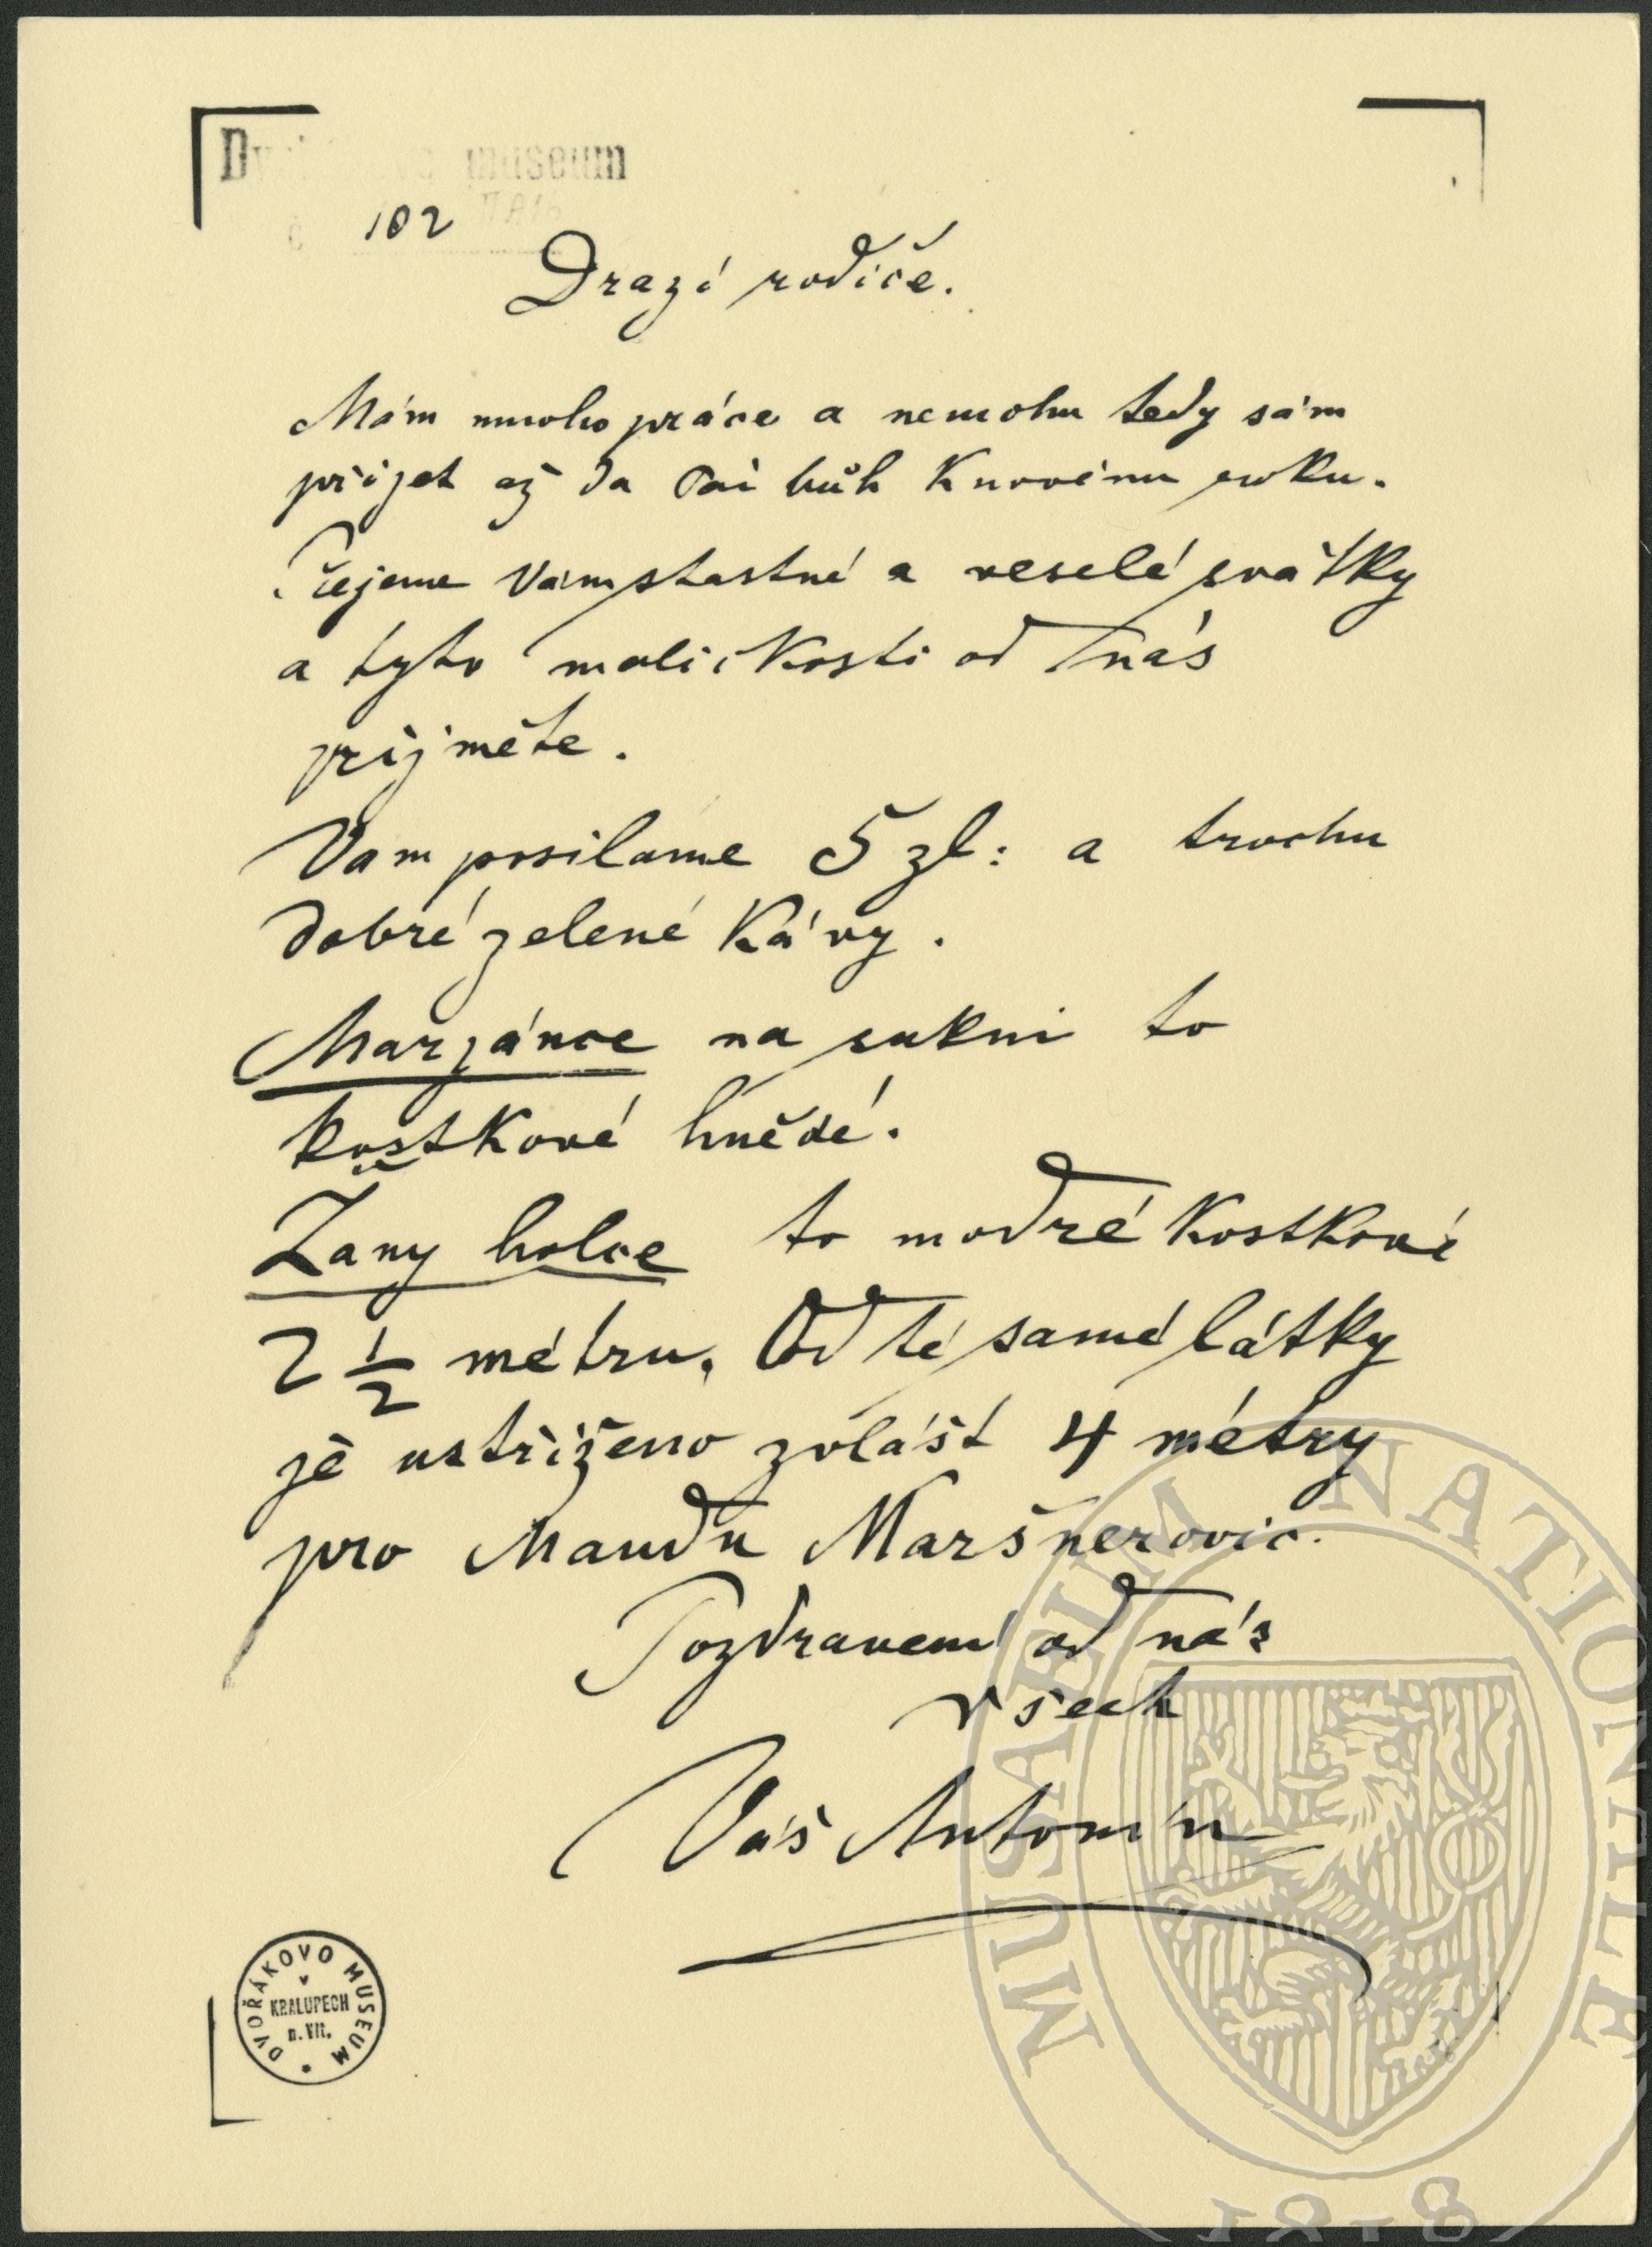 museum
102
Drazí rodiče.
Mám mnoho práce a nemohu tedy sám
přijet až da Pán bůh K novému roku.
Přejeme Vám stastné a veselé svátky
a tyto maličkosti od nás
prijměte.
Vam posilame 5 zl: a trochu
dobré zelené Kávy.
Marjánce na sukni to
kostkové hnědé.
Žany holce to modré Kostkové
2 1/2 métru. Od té samé látky
je ustřiženo zvlášt 4 métry
pro Mandu Maršnerovic.
Pozdravení od nás
všech
Váš Antonín
DVOŘÁKOVO MUSEUM
v
KRALUPECH
n. Vlt.
MUSAEUM NATIONALE
1818